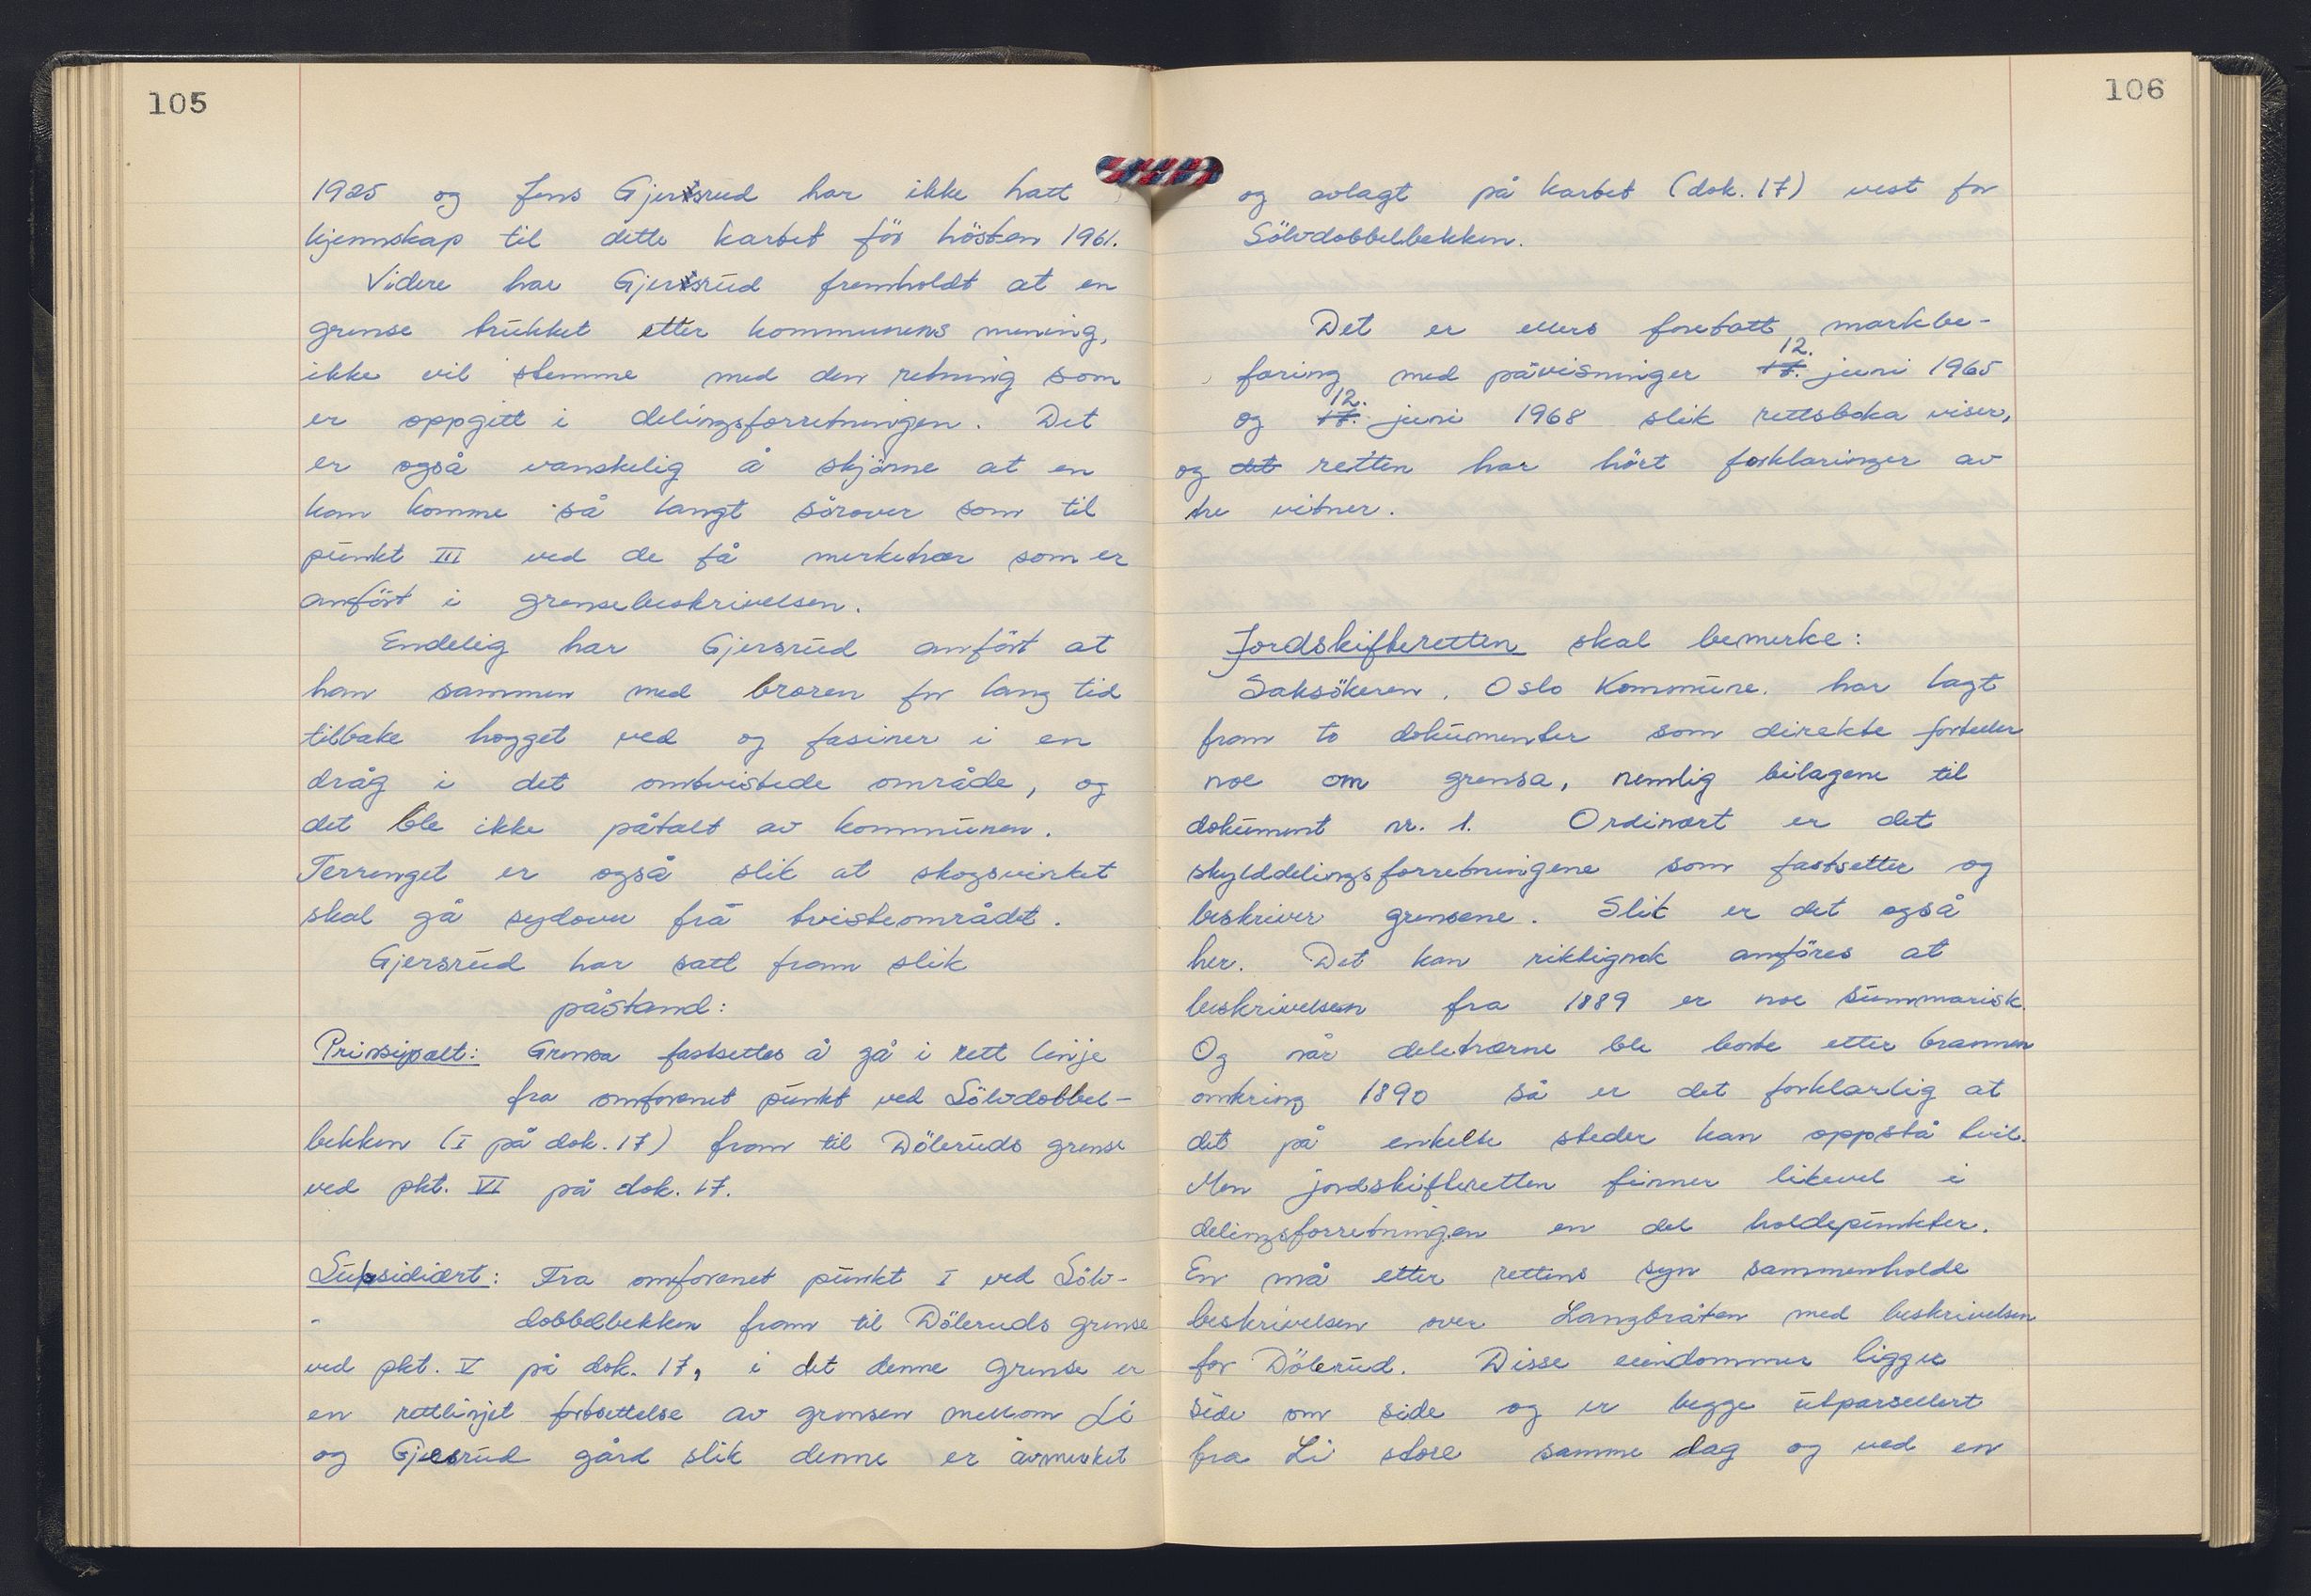 105
1925 og Jens Gjersrud har ikke hatt
kjennskap til dette kartet før høsten 1961.
Videre har Gjersrud fremholdt at en
grense trukket etter kommunens mening,
ikke vil stemme med den retning som
er oppgitt i delingsforretningen. Det
er også vanskelig å skjønne at en
kan komme så langt sörover som til
punkt III ved de få merketrær som er
anfört i grensebeskrivelsen.
Endelig har Gjersrud anfört at
han sammen med broren for lang tid
tilbake hogget ved og fasiner i en
dråg i det omtvistede område, og
det ble ikke påtalt av kommunen.
Terrenget er også slik at skogsvirket
skal gå sydover frå tvisteområdet.
Gjersrud har satt fram slik
påstand:
Prinsipalt: Grensa fastsettes å gå i rett linje
fra omforenet punkt ved Sölvdobbel-
bekken (I på dok. 17) fram til Döleruds grense
ved pkt. VI på dok. 17.
Subsidiært: Fra omforenet punkt I ved Sölv-
- dobbelbekken fram til Döleruds grense
ved pkt. V på dok. 17, i det denne grense er
en rettlinjet fortsettelse av grensen mellom Li
og Gjersrud gård slik denne er avmerket
106
og avlagt på kartet (dok. 17) vest for
Sölvdobbelbekken.
Det er ellers foretatt markbe-
12.
faring med påvisninger 17. juni 1965
12.
og 17. juni 1968 slik rettsboka viser,
og det retten har hört forklaringer av
tre vitner.
Jordskifteretten skal bemerke:
Saksökeren, Oslo Kommune, har lagt
fram to dokumenter som direkte forteller
noe om grensa, nemlig bilagene til
dokument nr. 1. Ordinært er det
skylddelingsforretningene som fastsetter og
beskriver grensene. Slik er det også
her. Det kan riktignok anföres at
beskrivelsen fra 1889 er noe summarisk.
Og når deletrærne ble borte etter brannen
omkring 1890 så er det forklarlig at
det på enkelte steder kan oppstå tvil.
Men jordskifteretten finner likevel i
delingsforretningen en del holdepunkter.
En må etter rettens syn sammenholde
beskrivelsen over Langbråten med beskrivelsen
for Dölerud. Disse eiendommer ligger
side om side og er begge utparsellert
fra Li store samme dag og ved en